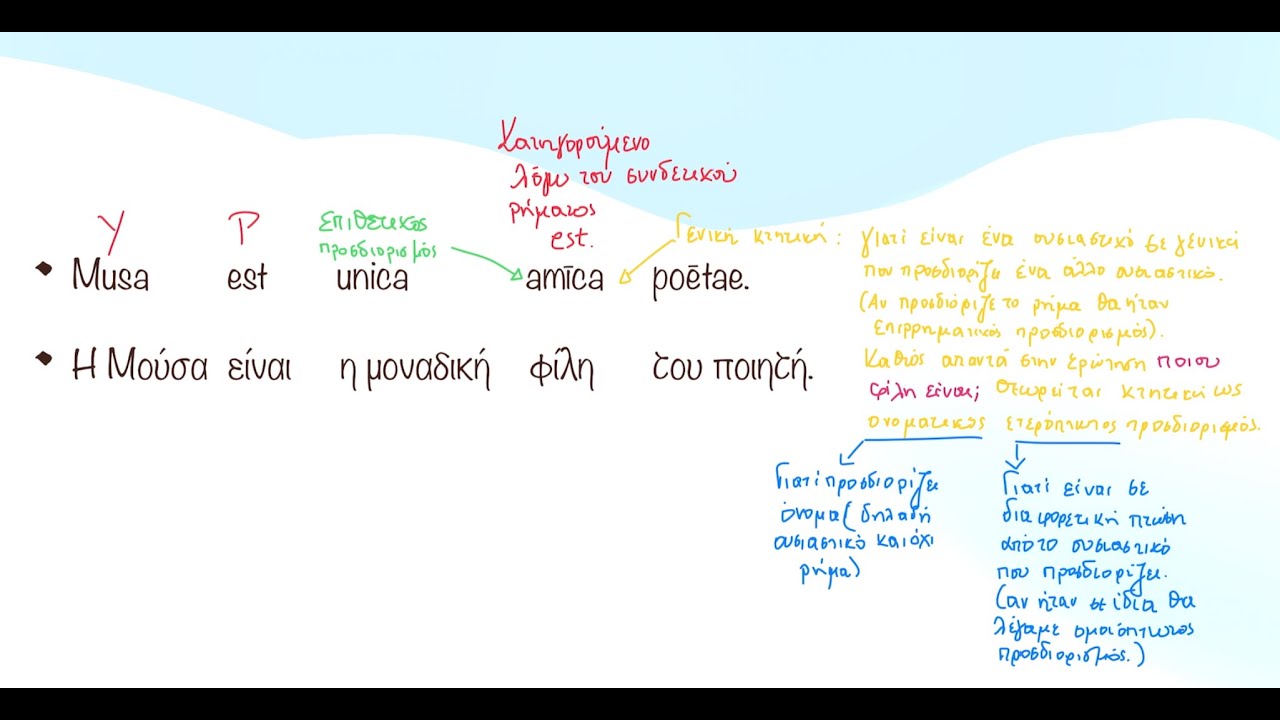 Κατηγορούμενο
λόγω του συνδετικού
ρήματος
est.
Υ
Ρ
επιθετικός
προσδιορισμός
Γενική κτητική: γιατί είναι ένα ουσιαστικό σε γενική
που προσδιορίζει ένα άλλο ουσιαστικό.
(Αν προσδιόριζε το ρήμα θα ήταν
επιρρηματικός προσδιορισμός).
Καθώς απαντά στην ερώτηση ποιου
φίλη είναι; θεωρείται κτητική ως
ονοματικός ετερόπτωτος προσδιορισμός.
• Musa est unica amīca poētae.
• Η Μούσα είναι η μοναδική φίλη του ποιητή.
Γιατί προσδιορίζει
όνομα (δηλαδή
ουσιαστικό και όχι
ρήμα)
Γιατί είναι σε
διαφορετική πτώση
από το ουσιαστικό
που προσδιορίζει.
(αν ήταν σε ίδια θα
λέγαμε ομοιόπτωτος
προσδιορισμός.)